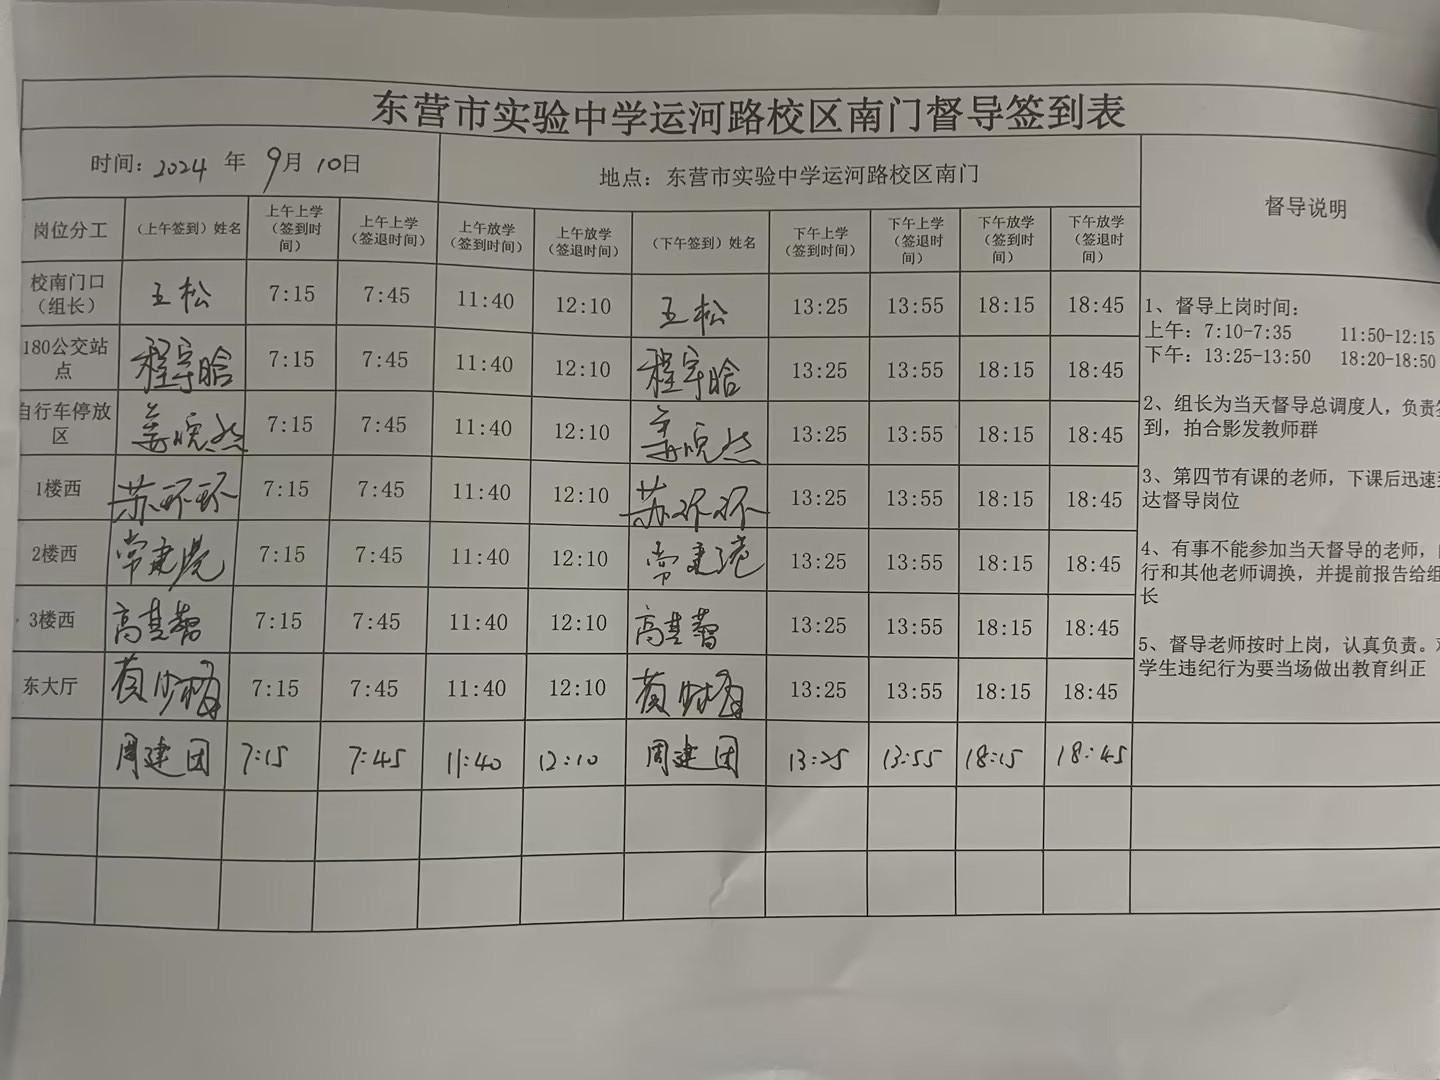 东营市实验中学运河路校区南门督导签到表
时间：2024 年 9月 10日 地点：东营市实验中学运河路校区南门 督导说明
岗位分工 （上午签到）姓名 上午上学（签到时间） 上午上学（签退时间） 上午放学（签到时间） 上午放学（签退时间） （下午签到）姓名 下午上学（签到时间） 下午上学（签退时间） 下午放学（签到时间） 下午放学（签退时间）
校南门口（组长） 王松 7:15 7:45 11:40 12:10 王松 13:25 13:55 18:15 18:45
180公交站点 程宇晗 7:15 7:45 11:40 12:10 程宇晗 13:25 13:55 18:15 18:45
自行车停放区 姜皖然 7:15 7:45 11:40 12:10 姜皖然 13:25 13:55 18:15 18:45
1楼西 苏环环 7:15 7:45 11:40 12:10 苏环环 13:25 13:55 18:15 18:45
2楼西 常建 7:15 7:45 11:40 12:10 常建 13:25 13:55 18:15 18:45
3楼西 高其 7:15 7:45 11:40 12:10 高其 13:25 13:55 18:15 18:45
东大厅 黄少梅 7:15 7:45 11:40 12:10 黄少梅 13:25 13:55 18:15 18:45
周建团 7:15 7:45 11:40 12:10 周建团 13:25 13:55 18:15 18:45
1、督导上岗时间：
上午：7:10-7:35 11:50-12:15
下午：13:25-13:50 18:20-18:50
2、组长为当天督导总调度人，负责签
到，拍合影发教师群
3、第四节有课的老师，下课后迅速到
达督导岗位
4、有事不能参加当天督导的老师，自
行和其他老师调换，并提前报告给组
长
5、督导老师按时上岗，认真负责。对
学生违纪行为要当场做出教育纠正